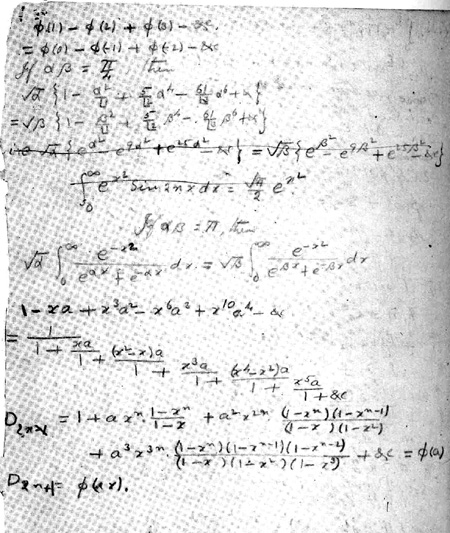 φ(1) - φ(2) + φ(3) - &c.
= φ(0) - φ(-1) + φ(-2) - &c
If αβ = π/4 then
√α {1 - α²/ + 5/ α⁴ - 61/ α⁶ + &c}
= √β {1 - β²/ + 5/ β⁴ - 61/ β⁶ + &c}
√α {e^α² - e^9α² + e^25α² - &c} = √β {e^β² - e^9β² + e^25β² - &c}
∫₀^∞ e^x² Sin 2nx dx = √π/2 e^x²
If αβ = π, then
√α ∫₀^∞ e^-x²/(e^αx + e^-αx) dx = √β ∫₀^∞ e^-x²/(e^βx + e^-βx) dx
1 - xa + x³a² - x⁶a³ + x¹⁰a⁴ - &c
= 1/1 + xa/1 + (x²-x)a/1 + x³a/1 + (x⁴-x²)a/1 + x⁵a/1 + &c
= 1 + a xⁿ · (1-xⁿ)/(1-x) + a² x²ⁿ (1-xⁿ)(1-xⁿ⁻¹)/(1-x)(1-x²)
+ a³ x³ⁿ (1-xⁿ)(1-xⁿ⁻¹)(1-xⁿ⁻²)/(1-x)(1-x²)(1-x³) + &c = φ(a)
D₂ₙ₊₁ = φ(ax).